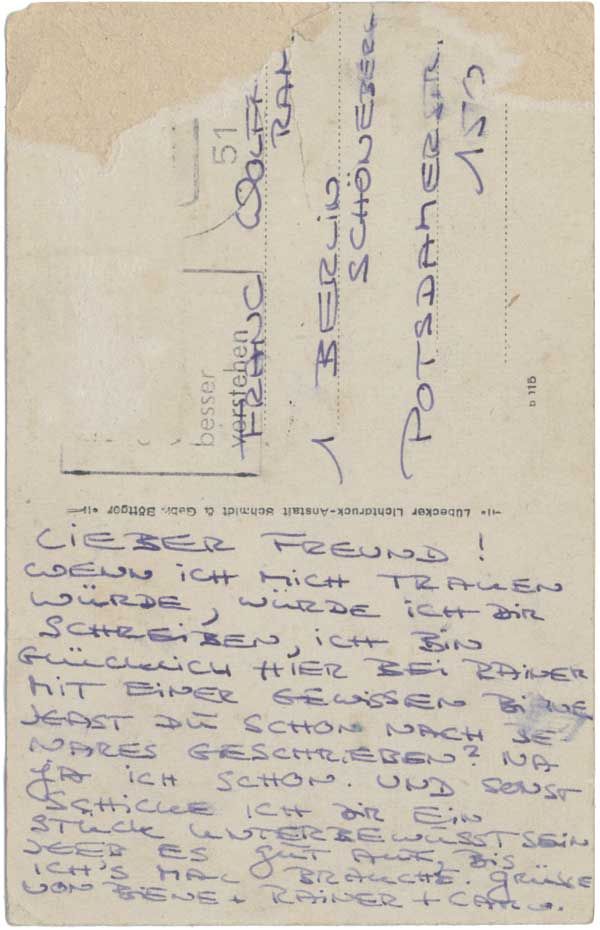 51
besser
verstehen
FRANC WOLFF
RAM
1 BERLIN
SCHÖNEBERG
POTSDAMERSTR.
150
D 115
Lübecker Lichtdruck-Anstalt Schmidt & Gebr. Böttger
LIEBER FREUND!
WENN ICH MICH TRAUEN
WÜRDE, WÜRDE ICH DIR
SCHREIBEN, ICH BIN
GLÜCKLICH HIER BEI RAINER
MIT EINER GEWISSEN BIENE
DU SCHON NACH BE-
NARES GESCHRIEBEN? NA
JA ICH SCHON. UND SONST
SCHICKE ICH DIR EIN
STÜCK UNTERBEWUSSTSEIN
ES GUT AUF, BIS
ICH'S MAL BRAUCHE. GRÜSSE
VON BIENE + RAINER +